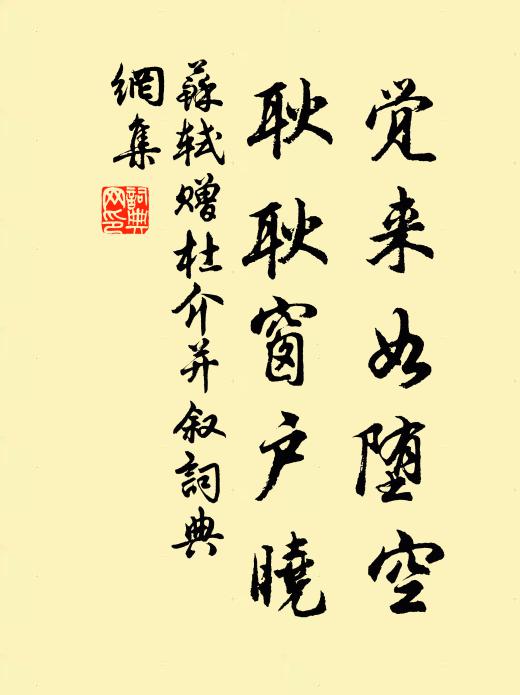 觉来如堕空
耿耿窗户晓
蘇轼赠杜介并叙詞典
網集
詞典
网印